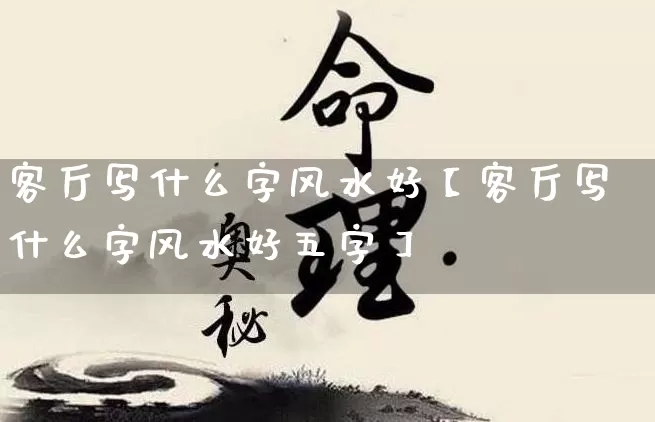 命理·
奥秘
客厅写什么字风水好【客厅写
什么字风水好五字】